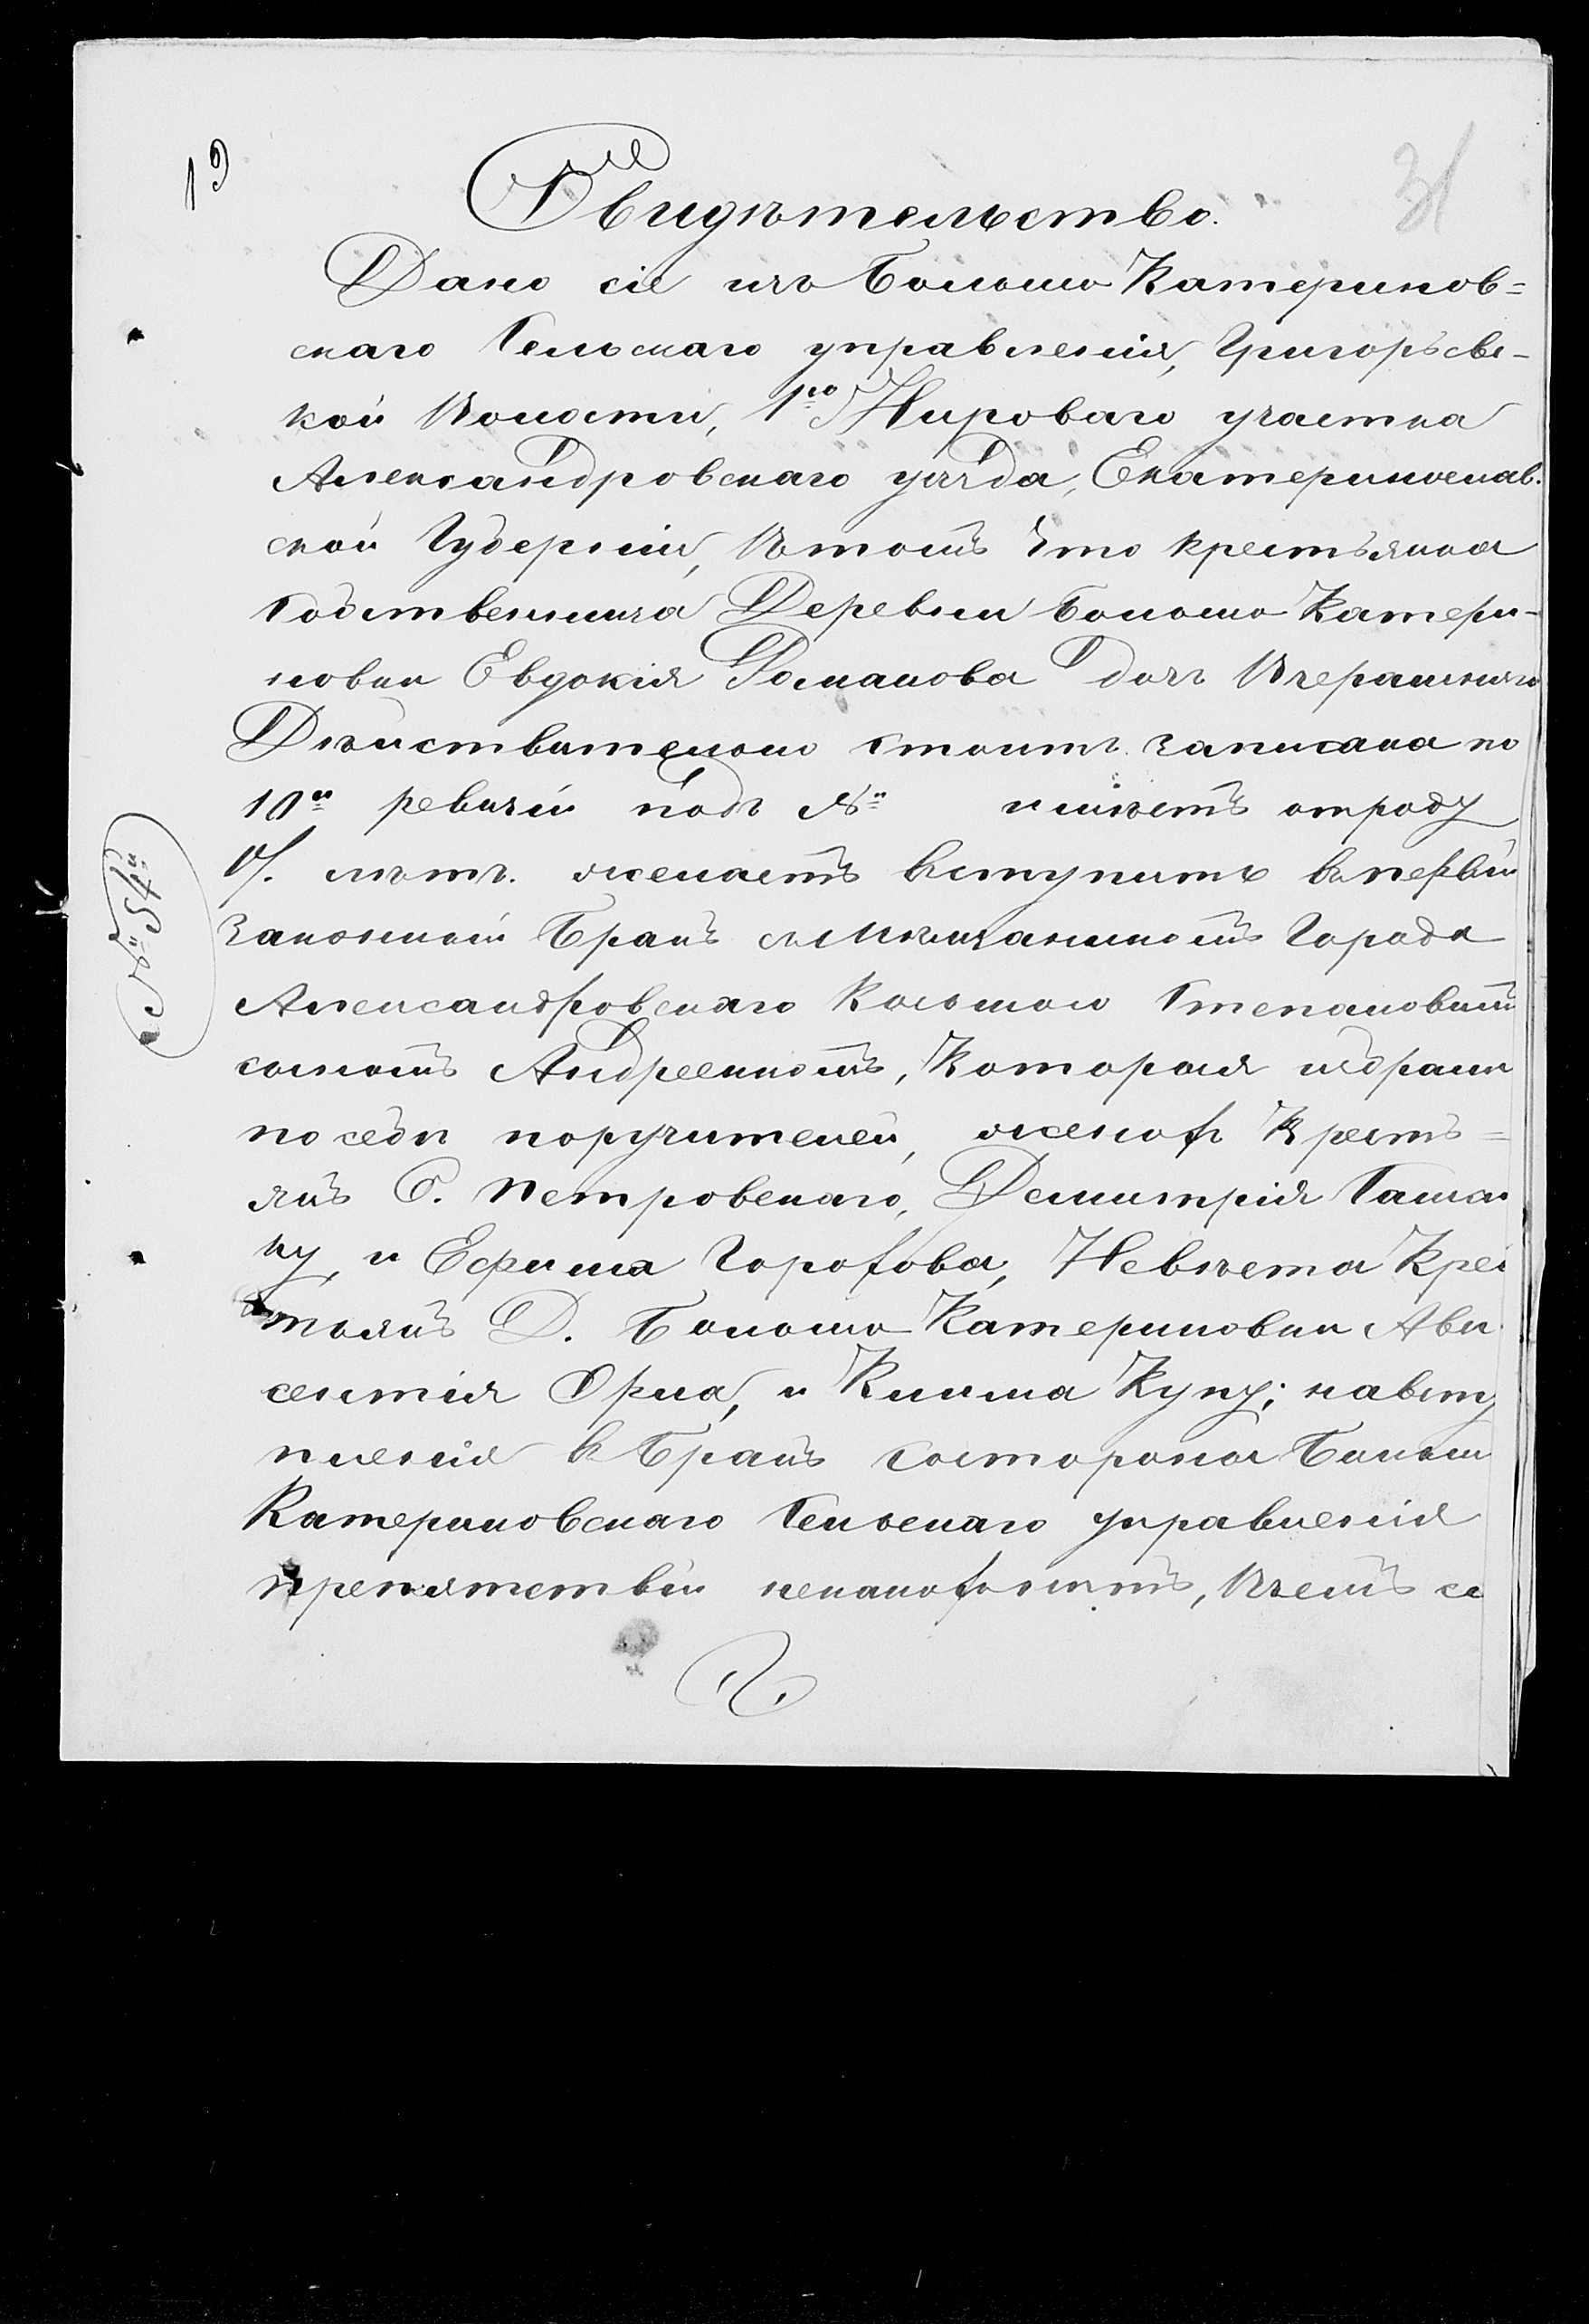 19
31
Свидѣтельство.
Дано сіе изъ Больше Катеринов=
скаго Сельскаго управленія, Григорьевс-
кой Волости, 1го Мироваго участка
Александровскаго уѣзда, Екатеринослав.
ской Губерніи, Вътомъ Что крестьянка
Собственница Деревни Больше Катери-
новки Евдокія Романова Дочь Вчерашняго
Дѣйствительно стоитъ записана по
10й ревизіи подъ № имѣетъ отроду
17. лѣтъ. желаетъ вступить въпервій
законный Бракъ съ Мѣщаниномъ Города
Александровскаго Косьмою Степановимъ
сыномъ Андреенкомъ, Которыя избрали
посебѣ поручителей, женихъ Кресть=
янъ С. Петровскаго, Демитрія
ку, и Ефима Горохова, Невѣста Крес
тьянъ Д. Больше Катериновки Авк
сентія Орла, и Клима Куку; навсту
пленіе въ Бракъ состороны Больше
Катериновскаго Сельскаго управленія
препятствій ненаходитъ, Вчемъ се
№ 54й